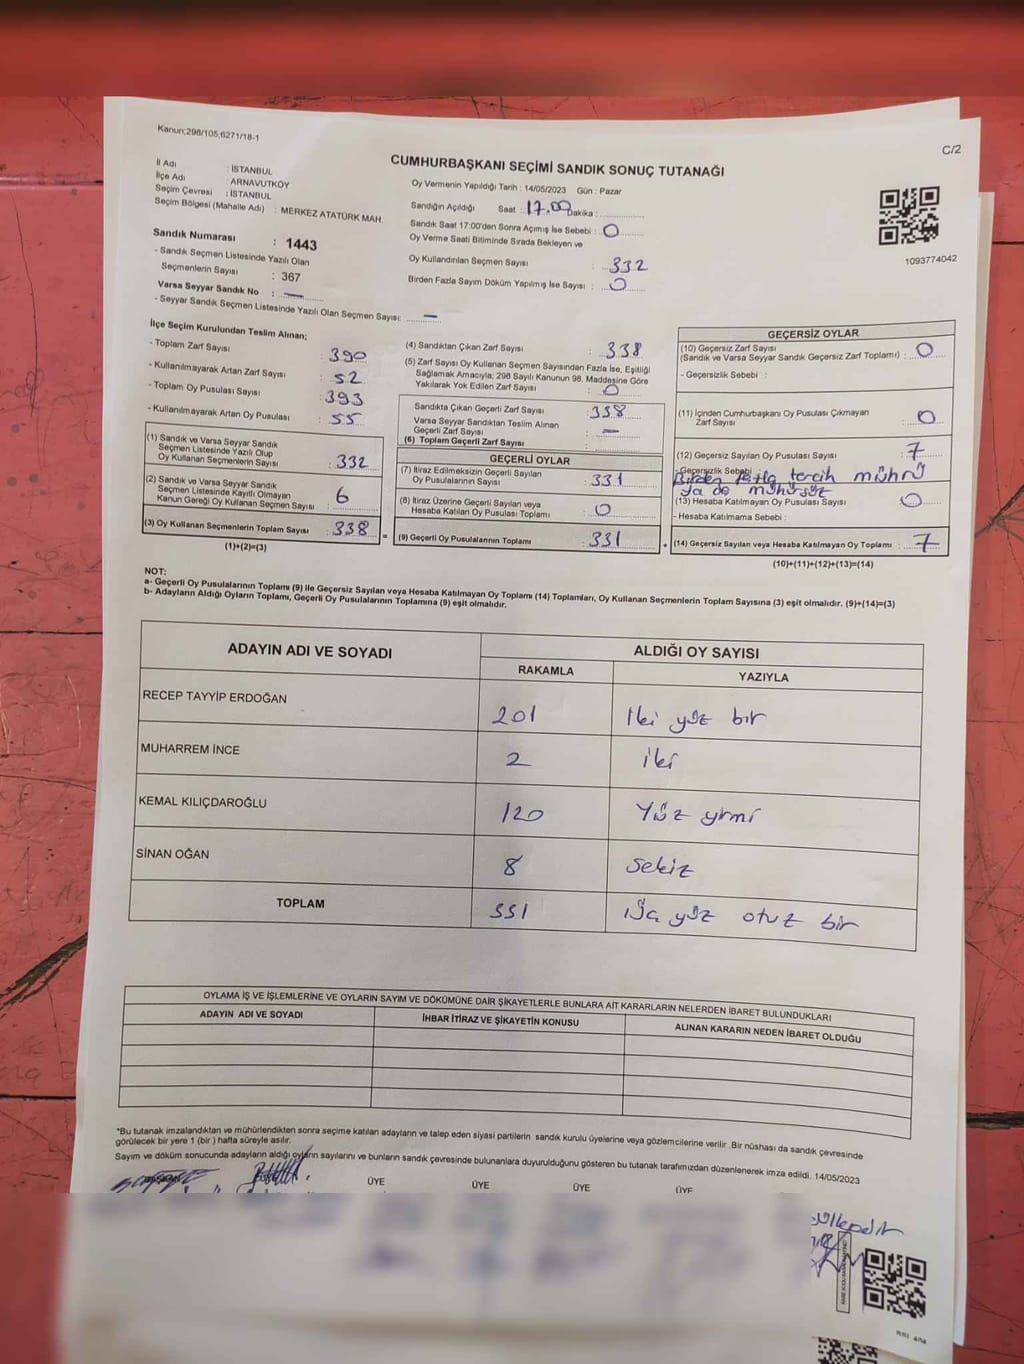 Kanun;298/105,6271/18-1
C/2
CUMHURBAŞKANI SEÇİMİ SANDIK SONUÇ TUTANAĞI
İl Adı : İSTANBUL
İlçe Adı : ARNAVUTKÖY
Seçim Çevresi : İSTANBUL
Seçim Bölgesi (Mahalle Adı) : MERKEZ ATATÜRK MAH.
Sandık Numarası : 1443
- Sandık Seçmen Listesinde Yazılı Olan
Seçmenlerin Sayısı : 367
Varsa Seyyar Sandık No : —
- Seyyar Sandık Seçmen Listesinde Yazılı Olan Seçmen Sayısı: —
Oy Vermenin Yapıldığı Tarih : 14/05/2023 Gün : Pazar
Sandığın Açıldığı Saat : 17.00 Dakika :
Sandık Saat 17:00'den Sonra Açılmış İse Sebebi : 0
Oy Verme Saati Bitiminde Sırada Bekleyen ve
Oy Kullandırılan Seçmen Sayısı : 332
Birden Fazla Sayım Döküm Yapılmış İse Sayısı : 0
1093774042
İlçe Seçim Kurulundan Teslim Alınan;
- Toplam Zarf Sayısı : 390
- Kullanılmayarak Artan Zarf Sayısı : 52
- Toplam Oy Pusulası Sayısı : 393
- Kullanılmayarak Artan Oy Pusulası : 55
(1) Sandık ve Varsa Seyyar Sandık
Seçmen Listesinde Yazılı Olup
Oy Kullanan Seçmenlerin Sayısı : 332
(2) Sandık ve Varsa Seyyar Sandık
Seçmen Listesinde Kayıtlı Olmayan
Kanun Gereği Oy Kullanan Seçmen Sayısı : 6
(3) Oy Kullanan Seçmenlerin Toplam Sayısı : 338
(1)+(2)=(3)
(4) Sandıktan Çıkan Zarf Sayısı : 338
(5) Zarf Sayısı Oy Kullanan Seçmen Sayısından Fazla İse, Eşitliği
Sağlamak Amacıyla; 298 Sayılı Kanunun 98. Maddesine Göre
Yakılarak Yok Edilen Zarf Sayısı : 0
Sandıkta Çıkan Geçerli Zarf Sayısı : 338
Varsa Seyyar Sandıktan Teslim Alınan
Geçerli Zarf Sayısı : —
(6) Toplam Geçerli Zarf Sayısı
GEÇERLİ OYLAR
(7) İtiraz Edilmeksizin Geçerli Sayılan
Oy Pusulalarının Sayısı : 331
(8) İtiraz Üzerine Geçerli Sayılan veya
Hesaba Katılan Oy Pusulası Toplamı : 0
(9) Geçerli Oy Pusulalarının Toplamı : 331
GEÇERSİZ OYLAR
(10) Geçersiz Zarf Sayısı
(Sandık ve Varsa Seyyar Sandık Geçersiz Zarf Toplamı) : 0
- Geçersizlik Sebebi :
(11) İçinden Cumhurbaşkanı Oy Pusulası Çıkmayan
Zarf Sayısı : 0
(12) Geçersiz Sayılan Oy Pusulası Sayısı : 7
- Geçersizlik Sebebi :
Birden fazla tercih mührü
ya da mühürsüz
(13) Hesaba Katılmayan Oy Pusulası Sayısı : 0
- Hesaba Katılmama Sebebi :
(14) Geçersiz Sayılan veya Hesaba Katılmayan Oy Toplamı : 7
(10)+(11)+(12)+(13)=(14)
NOT:
a- Geçerli Oy Pusulalarının Toplamı (9) ile Geçersiz Sayılan veya Hesaba Katılmayan Oy Toplamı (14) Toplamları, Oy Kullanan Seçmenlerin Toplam Sayısına (3) eşit olmalıdır. (9)+(14)=(3)
b- Adayların Aldığı Oyların Toplamı, Geçerli Oy Pusulalarının Toplamına (9) eşit olmalıdır.
ADAYIN ADI VE SOYADI ALDIĞI OY SAYISI
RAKAMLA YAZIYLA
RECEP TAYYİP ERDOĞAN 201 İki yüz bir
MUHARREM İNCE 2 iki
KEMAL KILIÇDAROĞLU 120 Yüz yirmi
SİNAN OĞAN 8 Sekiz
TOPLAM 331 yüz otuz bir
OYLAMA İŞ VE İŞLEMLERİNE VE OYLARIN SAYIM VE DÖKÜMÜNE DAİR ŞİKAYETLERLE BUNLARA AİT KARARLARIN NELERDEN İBARET BULUNDUKLARI
ADAYIN ADI VE SOYADI İHBAR İTİRAZ VE ŞİKAYETİN KONUSU ALINAN KARARIN NEDEN İBARET OLDUĞU
*Bu tutanak imzalandıktan ve mühürlendikten sonra seçime katılan adayların ve talep eden siyasi partilerin sandık kurulu üyelerine veya gözlemcilerine verilir .Bir nüshası da sandık çevresinde
görülecek bir yere 1 (bir ) hafta süreyle asılır.
Sayım ve döküm sonucunda adayların aldığı oyların sayılarını ve bunların sandık çevresinde bulunanlara duyurulduğunu gösteren bu tutanak tarafımızdan düzenlenerek imza edildi. 14/05/2023
ÜYE ÜYE ÜYE ÜYE